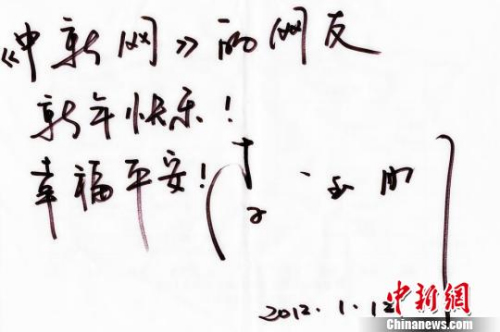 《中新网》的网友
新年快乐！
幸福平安！
2012.1.12
中新网
Chinanews.com